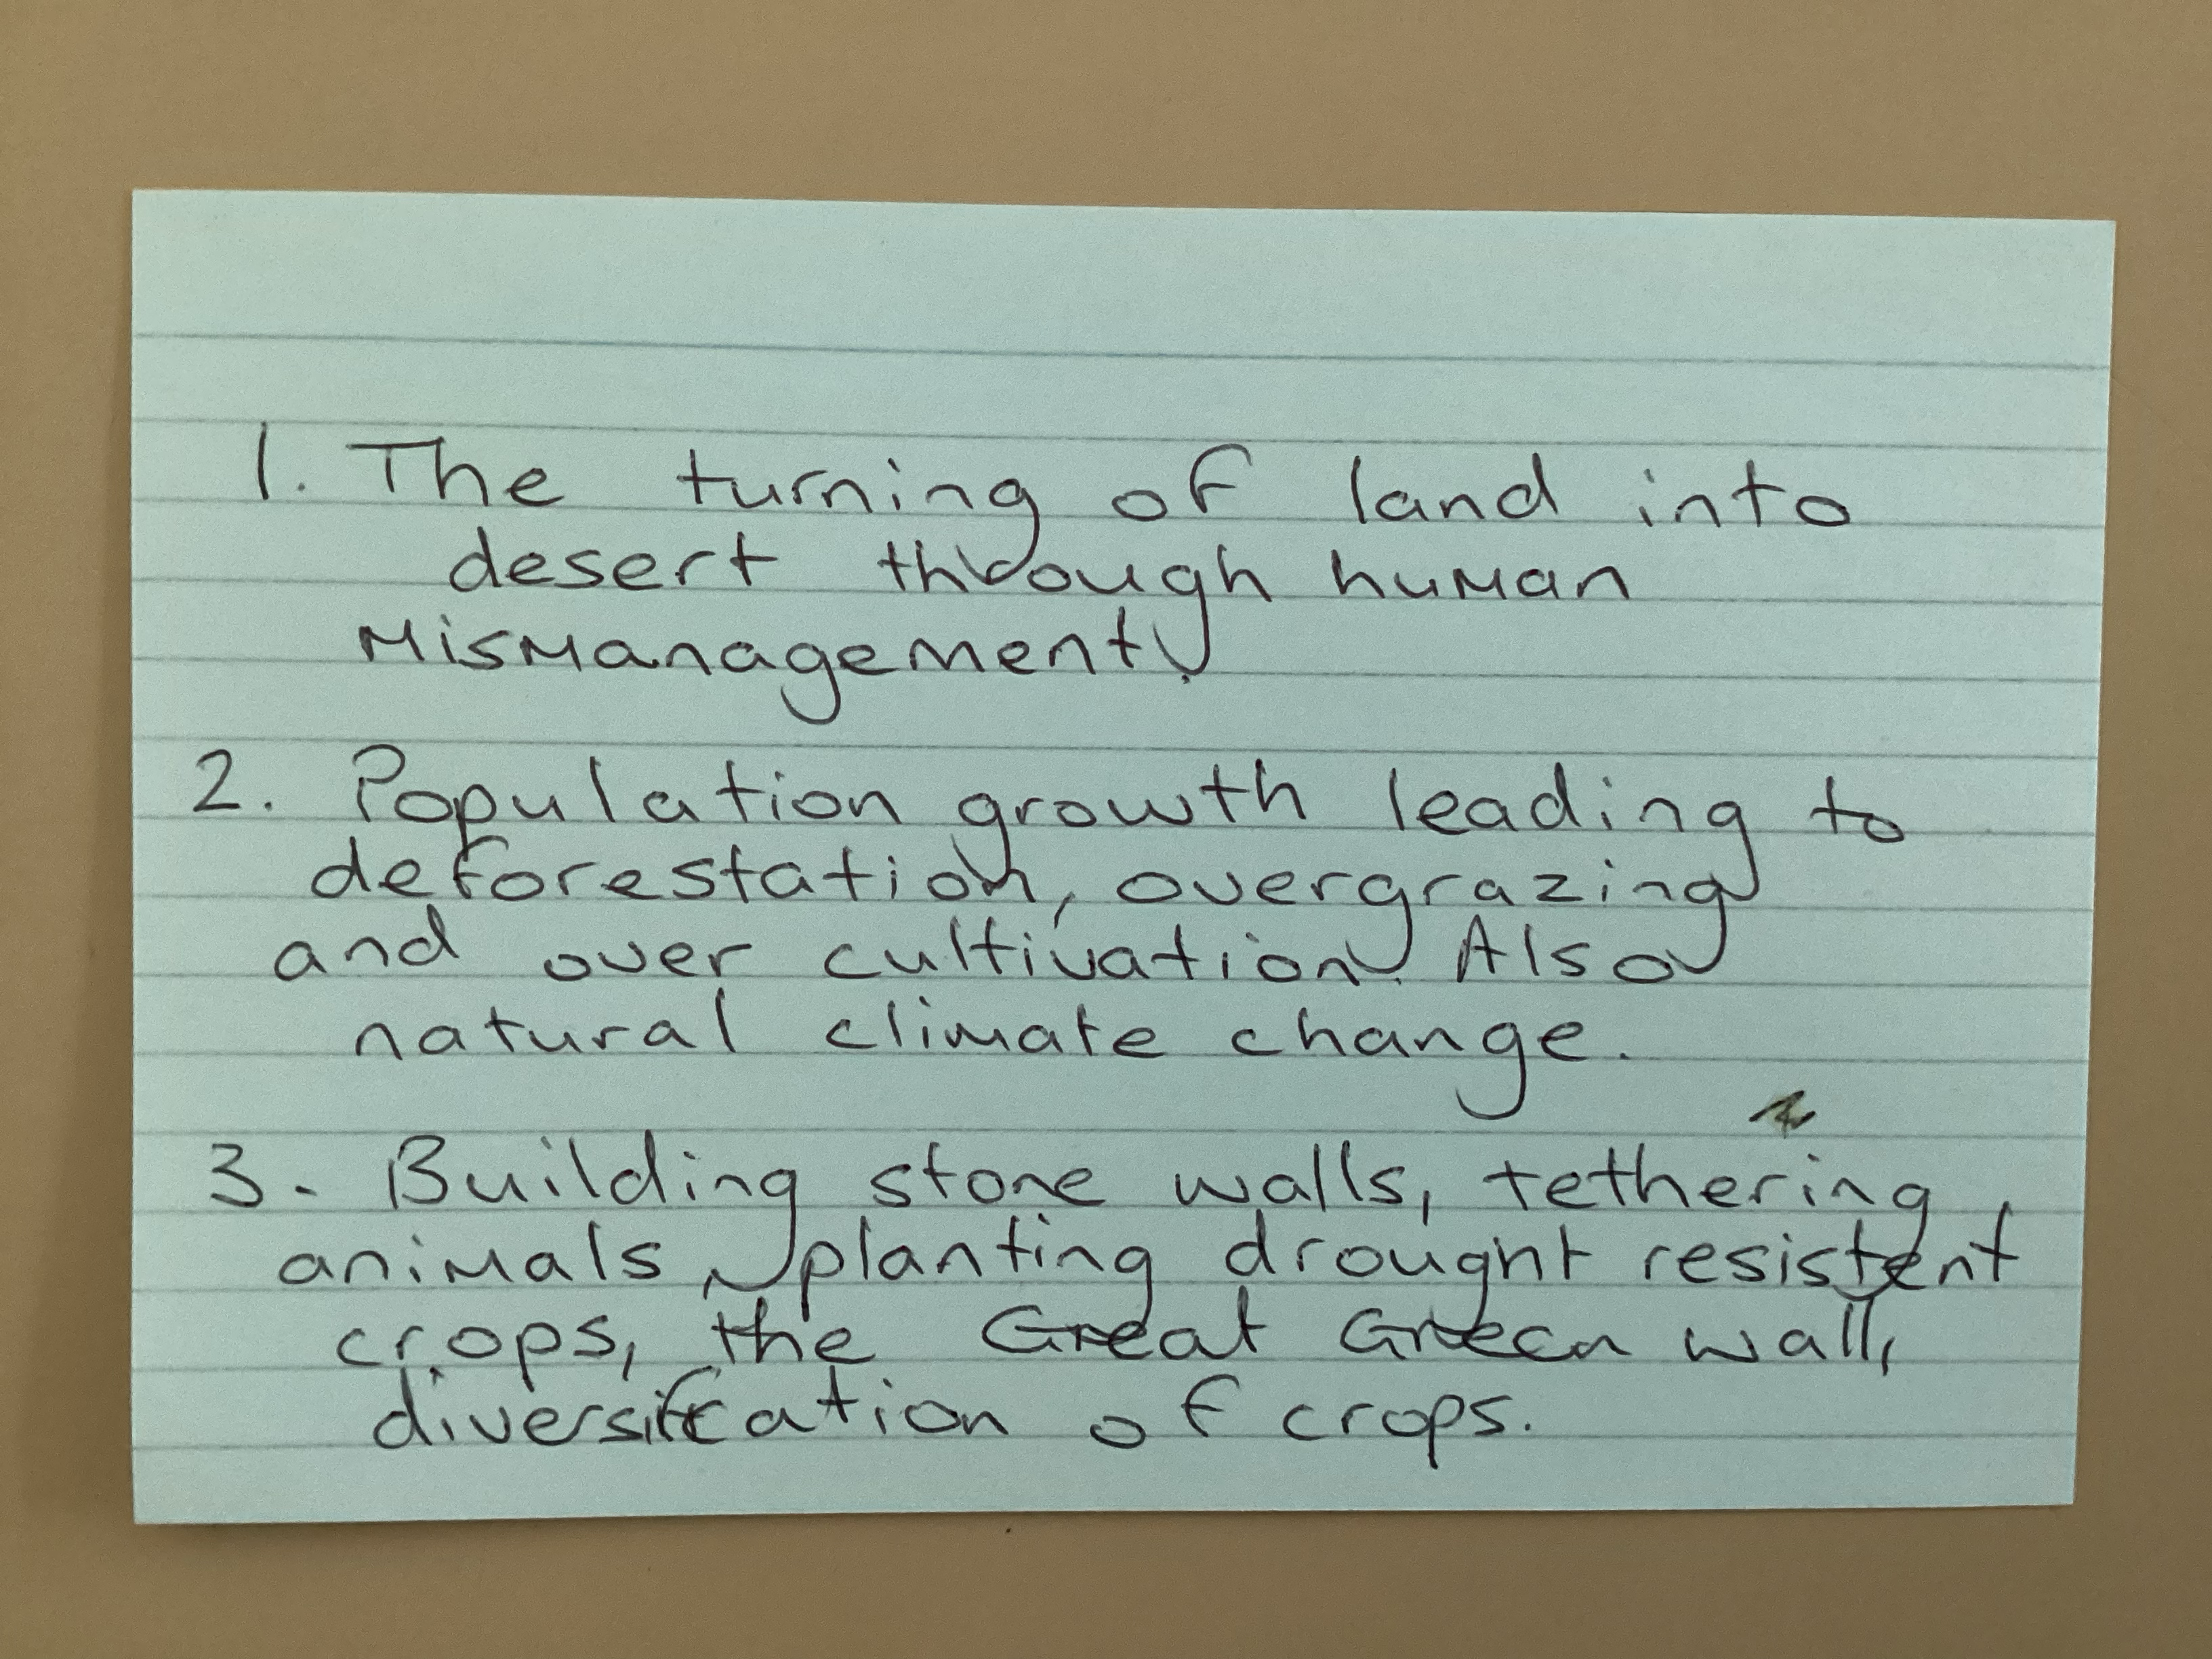 1. The turning of land into
desert through human
mismanagement.
2. Population growth leading to
deforestation, overgrazing
and over cultivation. Also
natural climate change.
3. Building stone walls, tethering
animals, planting drought resistent
crops, the Great Green wall,
diversification of crops.